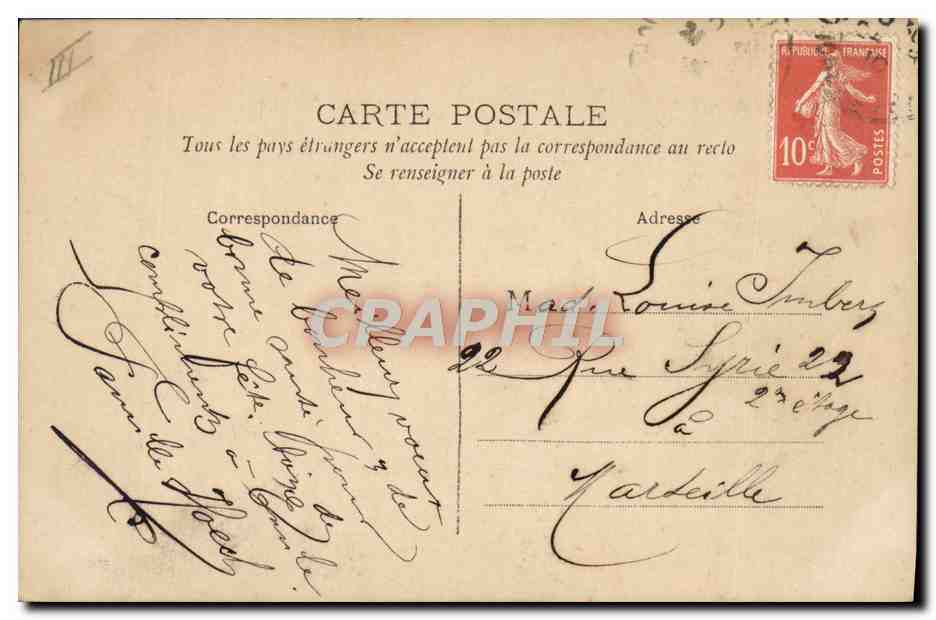 III
RÉPUBLIQUE FRANÇAISE
10c
POSTES
CARTE POSTALE
Tous les pays étrangers n'acceptent pas la correspondance au recto
Se renseigner à la poste
Correspondance
Meilleurs voeux
de bonheur & de
santé pour
bonne de
votre fête.
compliments à
famille Hoech
Adresse
Mad. Louise Imbert
22 Rue Syrie 22
2me étage
à
Marseille
CRAPHIL